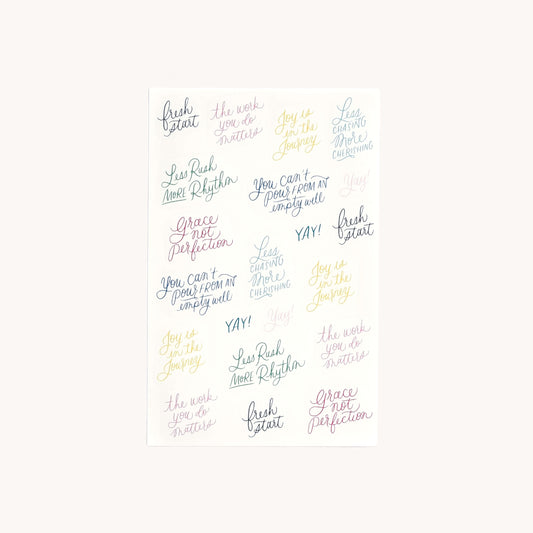 fresh
start
the work
you do
matters
Joy is
in the
Journey
Less
CHASING
More
CHERISHING
Less Rush
MORE Rhythm
You can't
pour FROM AN
empty well
Yay!
Grace
not
perfection
YAY!
fresh
start
You can't
pour FROM AN
empty well
Less
CHASING
More
CHERISHING
Joy is
in the
Journey
YAY!
Yay!
Joy is
in the
Journey
Less Rush
MORE Rhythm
the work
you do
matters
the work
you do
matters
fresh
start
Grace
not
perfection